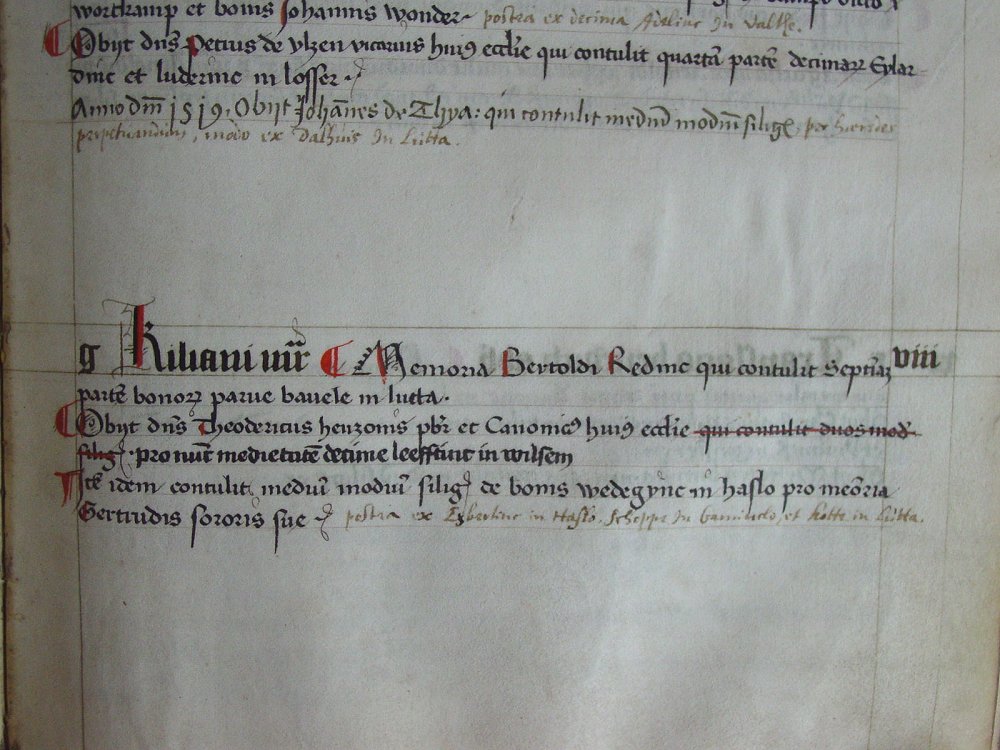 wortkamp et bonis Johannis wonder. postea ex decima
Obijt dn̄s Petrus de ulzen vicarius huiꝰ eccl̄ie qui contulit quartā partē decimaꝝ Eylar
dinc et luderinc in losser
Anno dn̄i 1519. Obijt Johānes de Thya: qui contulit mediū modiū siliḡ
perpetuandum, modo ex Dalhuis In Lutta.
g Kiliani mr̄ Memoria Bertoldi Redinc qui contulit Septimā viii
partē bonoꝝ parve bavele in lutta.
Obijt dn̄s Theodericus henzonis pb̄r et Canonicꝰ huiꝰ eccl̄ie qui contulit duos mod̄
siliḡ. pro nūc medietatē decime leefftinc in wilsem
Itē idem contulit mediū modiū siliḡ de bonis wedegync in haslo pro meōria
Gertrudis sororis sue postea ex Egbertinc in Haslo, Scheppe In et Kotte in Lutta.